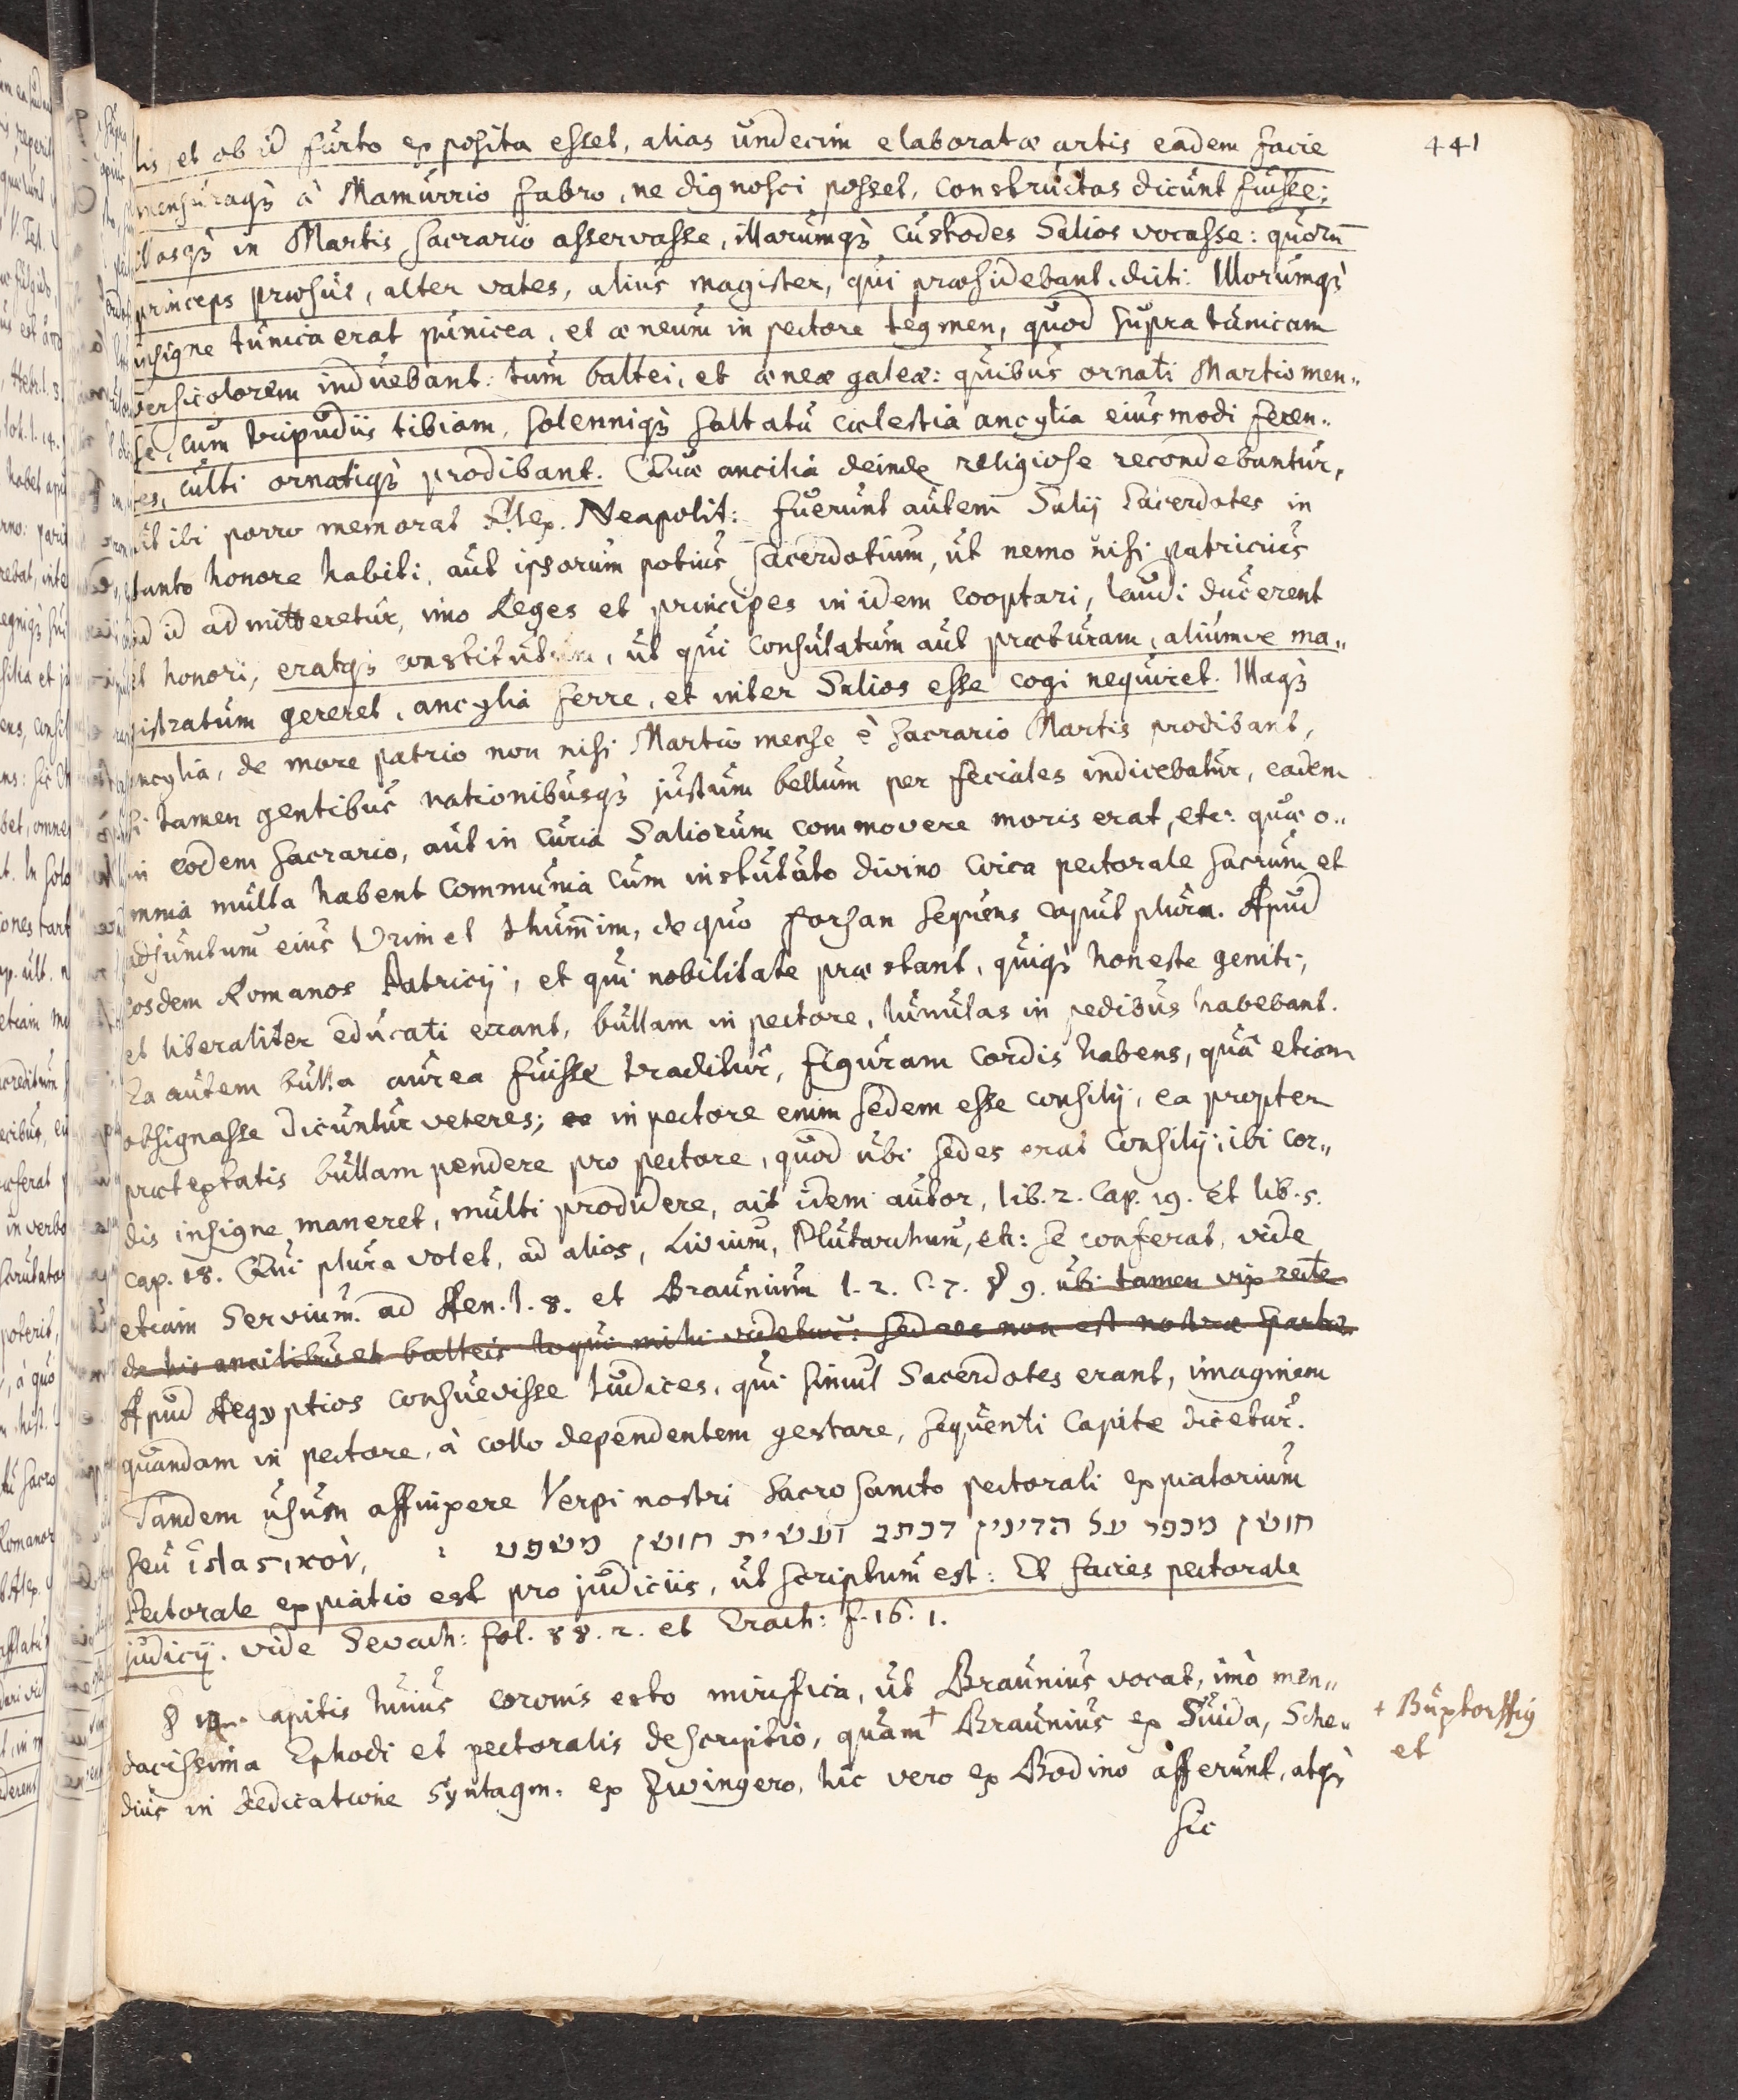 441
tis, et ob id furto exposita esset, alias undecim elaboratæ artis eadem facie
mensuraq3 à Mamurrio fabro, ne dignosci posset, constructas dicunt fuisse:
illasq3 in Martis sacrario asservasse, illarumq3 custodes Salios vocasse: quorū
princeps præsul, alter vates, alius magister, qui præsidebant, dicti: Illorumq3
insigne tunica erat punicea, et æneum in pectore tegmen, quod supra tunicam
versicolorem induebant: tum baltei, et æneæ galeæ: quibus ornati Martio men„
se, cum tripudiis tibiam, solenniq3 saltatu cælestia ancylia eiusmodi feren„
tes, culti ornatiq3 prodibant. Quæ ancilia deinde religiose recondebantur,
ut ibi porro memorat Alex. Neapolit: fuerunt autem Salij Sacerdotes in
tanto honore habiti, aut ipsorum potius sacerdotium, ut nemo nisi patricius
ad id admitteretur, imo Reges et principes in idem cooptari, laudi ducerent
et honori, eratq3 constitutum, ut qui Consulatum aut præturam, aliumve ma„
gistratum gereret, ancylia ferre, et inter Salios esse cogi nequiret. Illaq3
ancylia, de more patrio non nisi Martio mense è sacrario Martis prodibant,
si tamen gentibus nationibusq3 justum bellum per feciales indicebatur, eadem
in eodem sacrario, aut in curia Saliorum commovere moris erat, etc: quæ o„
mnia multa habent communia cum instituto divino circa pectorale sacrum et
adjunctum eius Urim et thum̄im, de quo forsan sequens caput plura. Apud
eosdem Romanos Patricij, et qui nobilitate præstant, quiq3 honeste geniti,
et liberaliter educati erant, bullam in pectore, lunulas in pedibus habebant.
Ea autem bulla aurea fuisse traditur, figuram cordis habens, quâ etiam
obsignasse dicuntur veteres; in pectore enim sedem esse consilij, ea propter
prætextatis bullam pendere pro pectore, quod ubi sedes erat Consilij, ibi cor„
dis insigne maneret, multi prodidere, ait idem autor, lib. 2. cap. 19. et lib. 5.
cap. 18. Qui plura volet, ad alios, Livium, Plutarchum, etc: se conferat, vide
etiam Servium. ad Aen. l. 8. et Braunium l. 2. c. 7. § 9. ubi tamen vix recte
de his ancilibus et balteis loqui mihi videtur: sed non est nostræ
Apud Aegyptios consuevisse Iudices, qui simul Sacerdotes erant, imaginem
quandam in pectore, à collo dependentem gestare, sequenti capite dicetur.
Tandem usum affinxere Verpi nostri Sacrosancto pectorali expiatorium
seu ἱλαστικὸν, : חושן מכפר על הדינין דכתב ועשית חושן משפט
Pectorale expiatio est pro judiciis, ut scriptum est: Et facies pectorale
judicij. vide Sevach: fol. 88. 2. et Erach: f. 16. 1.
§ Capitis huius coronis esto mirifica, ut Braunius vocat, imò men„
dacissima Ephodi et pectoralis descriptio, quam + Braunius ex Suida, Sche„
dius in dedicatione Syntagm. ex Zwingero, hic vero ex Bodino afferunt, atq3
sic
+ Buxtorffig
et